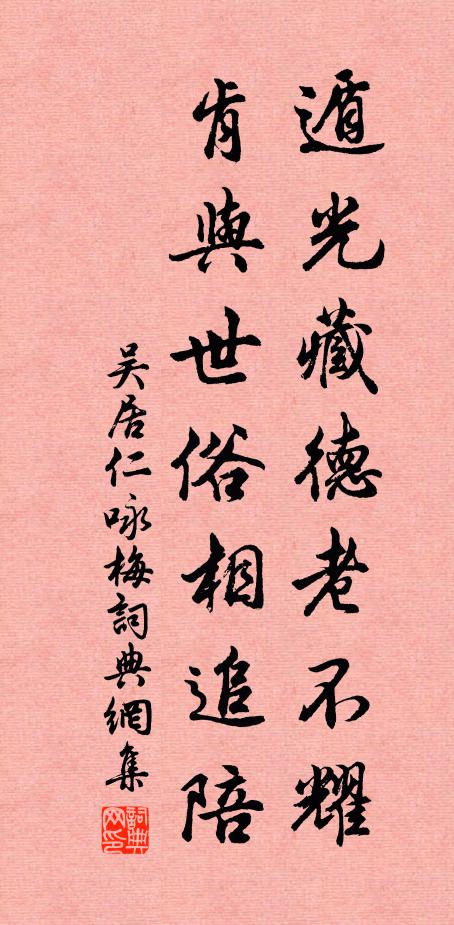 遁光藏德老不耀
肯與世俗相追陪
吴居仁咏梅詞典網集
詞典網印